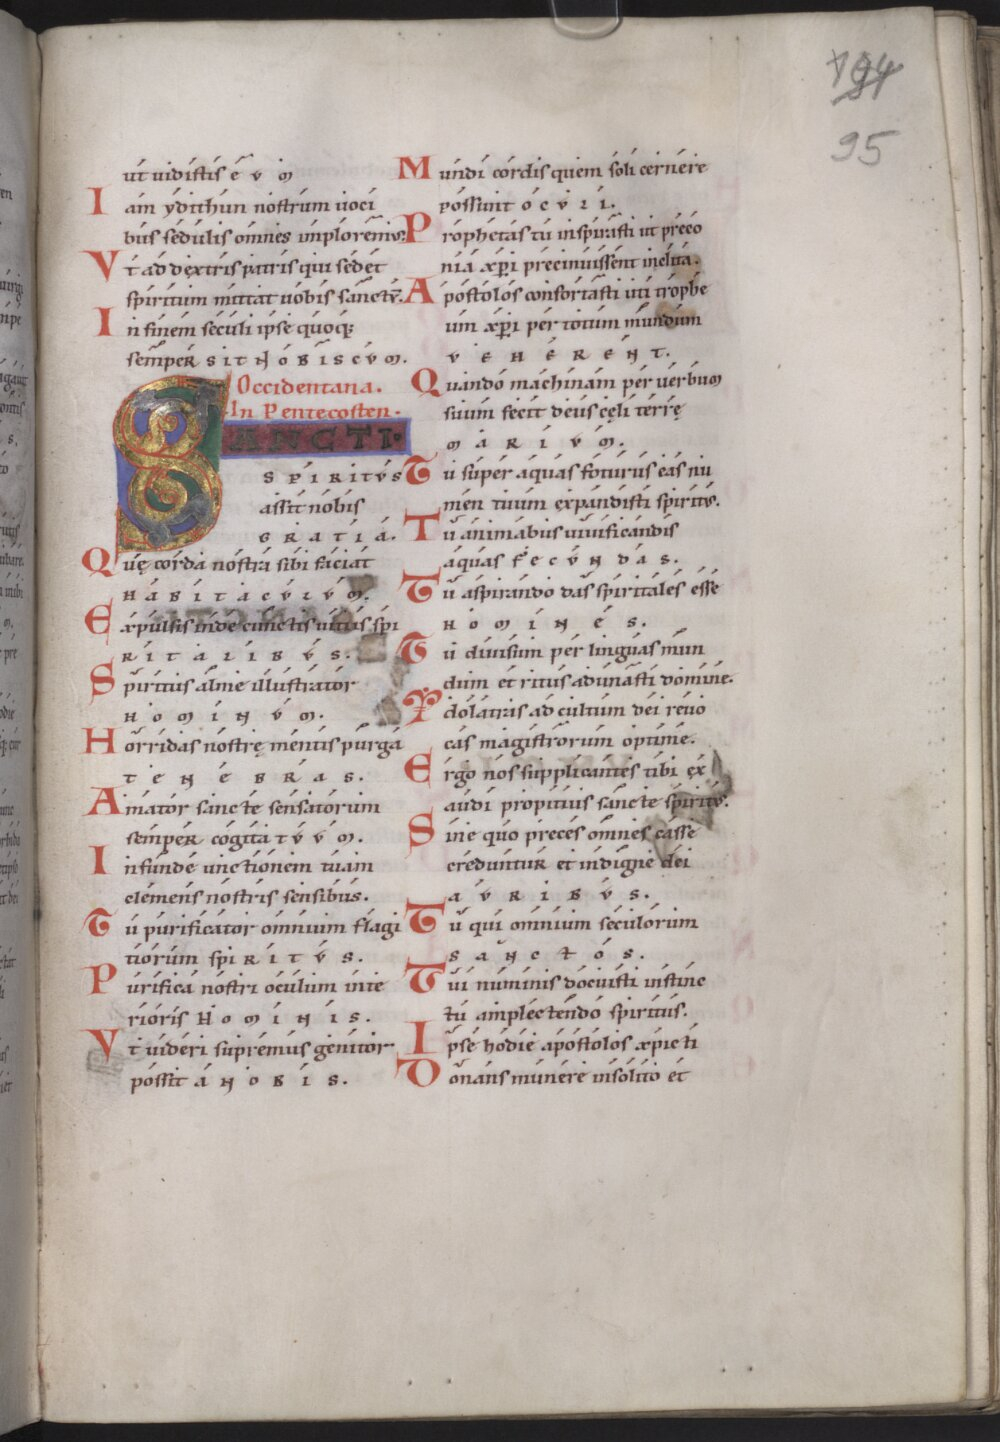 194
95
ut uidistis eum
Iam ydithun nostrum uoci
bus sedulis omnes imploremus.
Vt ad dextris patris qui sedet
spiritum mittat uobis sanctū.
In finem seculi ipse quoq;
semper SIT NOBISCUM.
Occidentana.
In Pentecosten.
SANCTI.
SPIRITVS
assit nobis
GRATIA.
Quę corda nostra sibi faciat
HABITACVLVM.
Expulsis inde cunctis uitiis spi
RITALIBVS.
Spiritus alme illustrator
HOMINVM.
Horridas nostrę mentis purga
TENEBRAS.
Amator sancte sensatorum
semper cogitaTVVM.
Infunde unctionem tuam
clemens nostris sensibus.
Tu purificator omnium flagi
tiorum spiRITVS.
Purifica nostri oculum inte
rioris HOMINIS.
Vt uideri supremus genitor
possit A NOBIS.
Mundi cordis quem soli cernere
possunt OCVLI.
Prophetas tu inspirasti ut preco
nia xp̄i precinuissent inclita.
Apostolos confortasti uti trophe
um xp̄i per totum mundum
VEHERENT.
Quando machinam per uerbum
suum fecit deus cęli terrę
MARIVM.
Tu super aquas foturus eas nu
men tuum expandisti spiritus.
Tu animabus uiuificandis
aquas FECVNDAS.
Tu aspirando das spiritales esse
HOMINES.
Tu diuisum per linguas mun
dum et ritus adunasti domine.
Ydolatras ad cultum dei reuo
cas magistrorum optime.
Ergo nos supplicantes tibi ex
audi propitius sancte spiritus.
Sine quo preces omnes casse
creduntur et indignę dei
AVRIBVS.
Tu qui omnium seculorum
SANCTOS.
Tui numinis docuisti instinc
tu amplectendo spiritus.
Ipse hodie apostolos xpicti
Donans munere insolito et